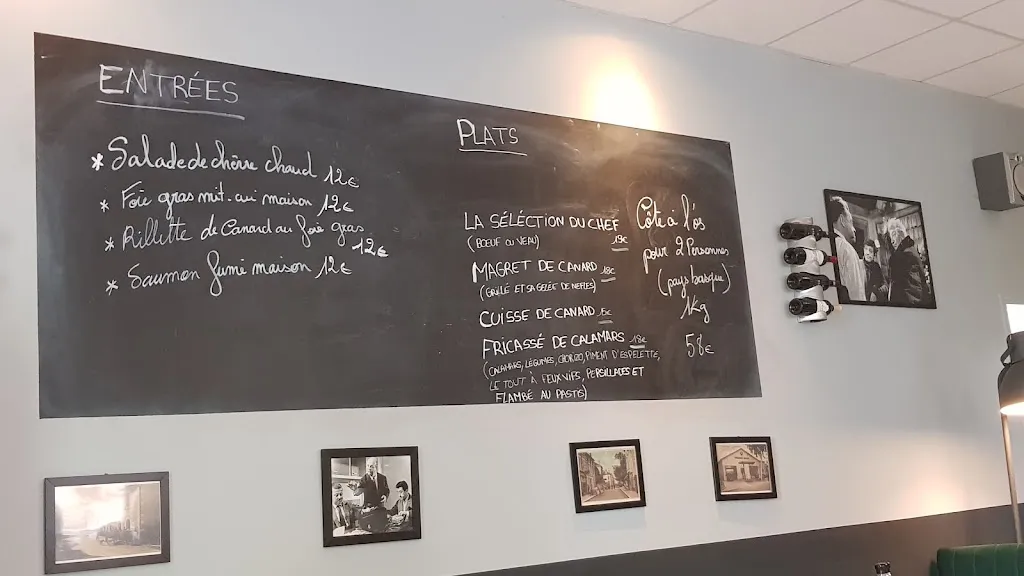 ENTRÉES
* Salade de chèvre chaud 12€
* Foie gras mi-cui maison 12€
* Rillette de Canard au foie gras
12€
* Saumon fumé maison 12€
PLATS
LA SÉLÉCTION DU CHEF
(BŒUF OU VEAU)
MAGRET DE CANARD 18€
(GRILLÉ ET SA GELÉE DE NEFLES)
CUISSE DE CANARD
FRICASSÉ DE CALAMARS 18€
(CALAMARS, LÉGUMES, CHORIZO, PIMENT D'ESPELETTE,
LE TOUT À FEUX VIFS, PERSILLADES ET
FLAMBÉ AU PASTIS)
Côte à l'os
pour 2 Personnes
(pays basque)
1kg
58€